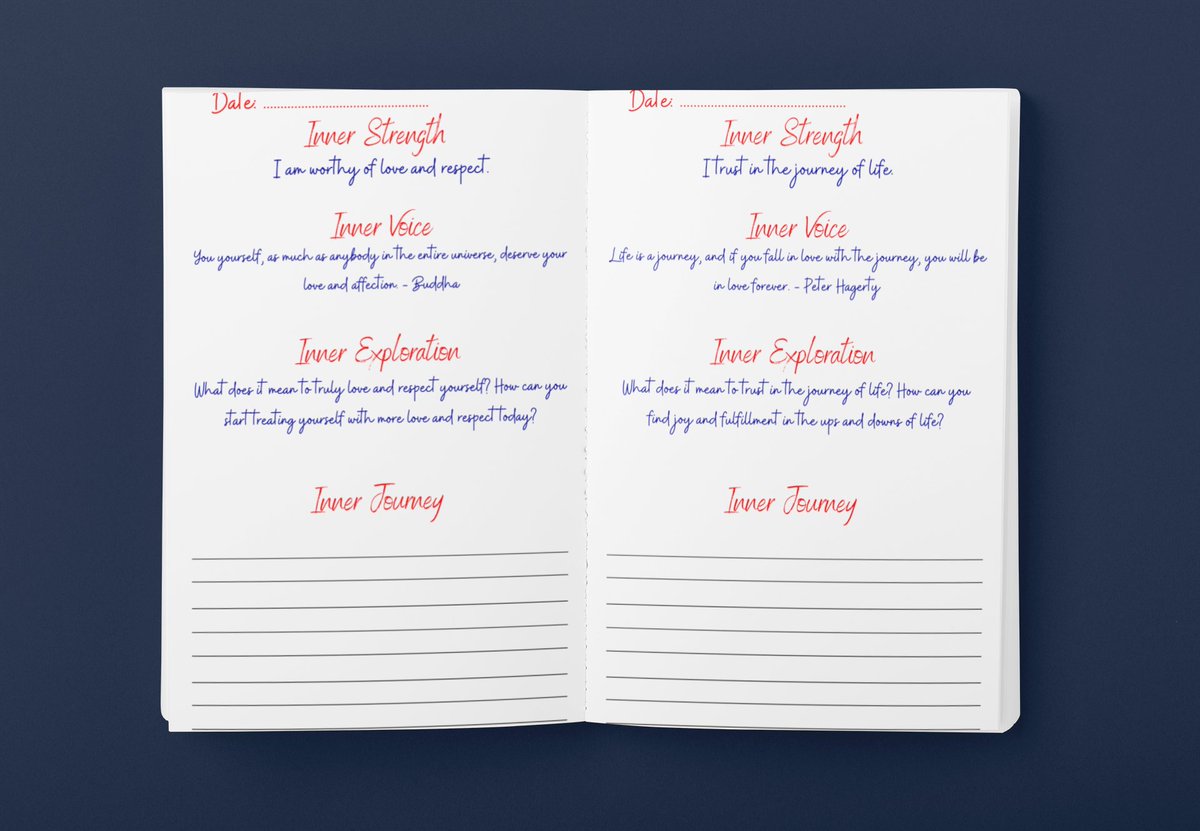 Date: ................................................
Inner Strength
I am worthy of love and respect.
Inner Voice
You yourself, as much as anybody in the entire universe, deserve your
love and affection. - Buddha
Inner Exploration
What does it mean to truly love and respect yourself? How can you
start treating yourself with more love and respect today?
Inner Journey
Date: ................................................
Inner Strength
I trust in the journey of life.
Inner Voice
Life is a journey, and if you fall in love with the journey, you will be
in love forever. - Peter Hagerty
Inner Exploration
What does it mean to trust in the journey of life? How can you
find joy and fulfillment in the ups and downs of life?
Inner Journey